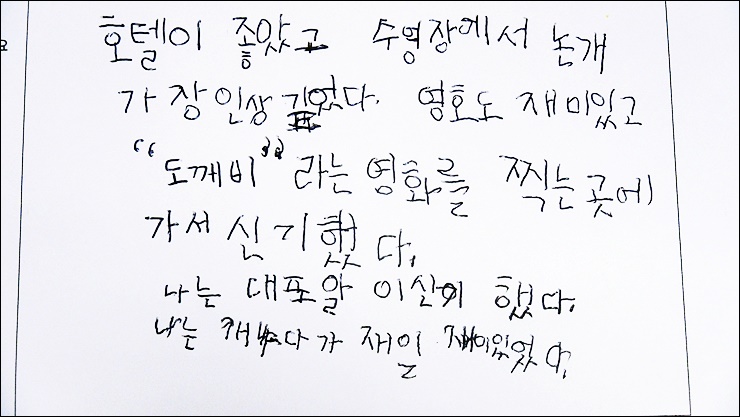 호텔이 좋았고 수영장에서 논개
가장 인상 깊었다. 영호도 재미있고
"도깨비"라는 영화를 찍는 곳에
가서 신기했다.
나는 대포알 이신기 했다.
나는 가 재일 재미있었다.